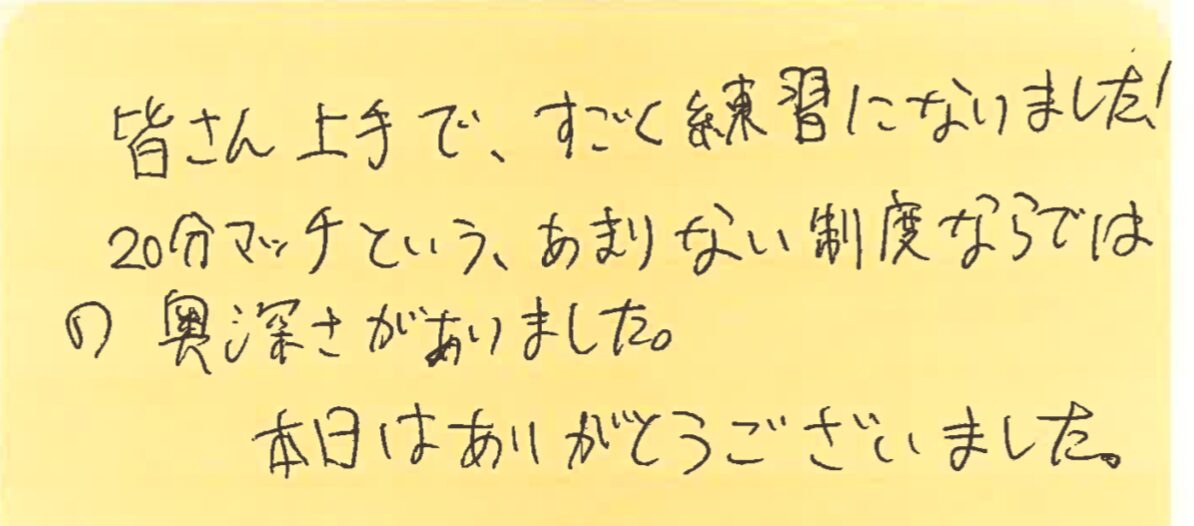 皆さん上手で、すごく練習になりました!
20分マッチという、あまりない制度ならでは
の奥深さがありました。
本日はありがとうございました。